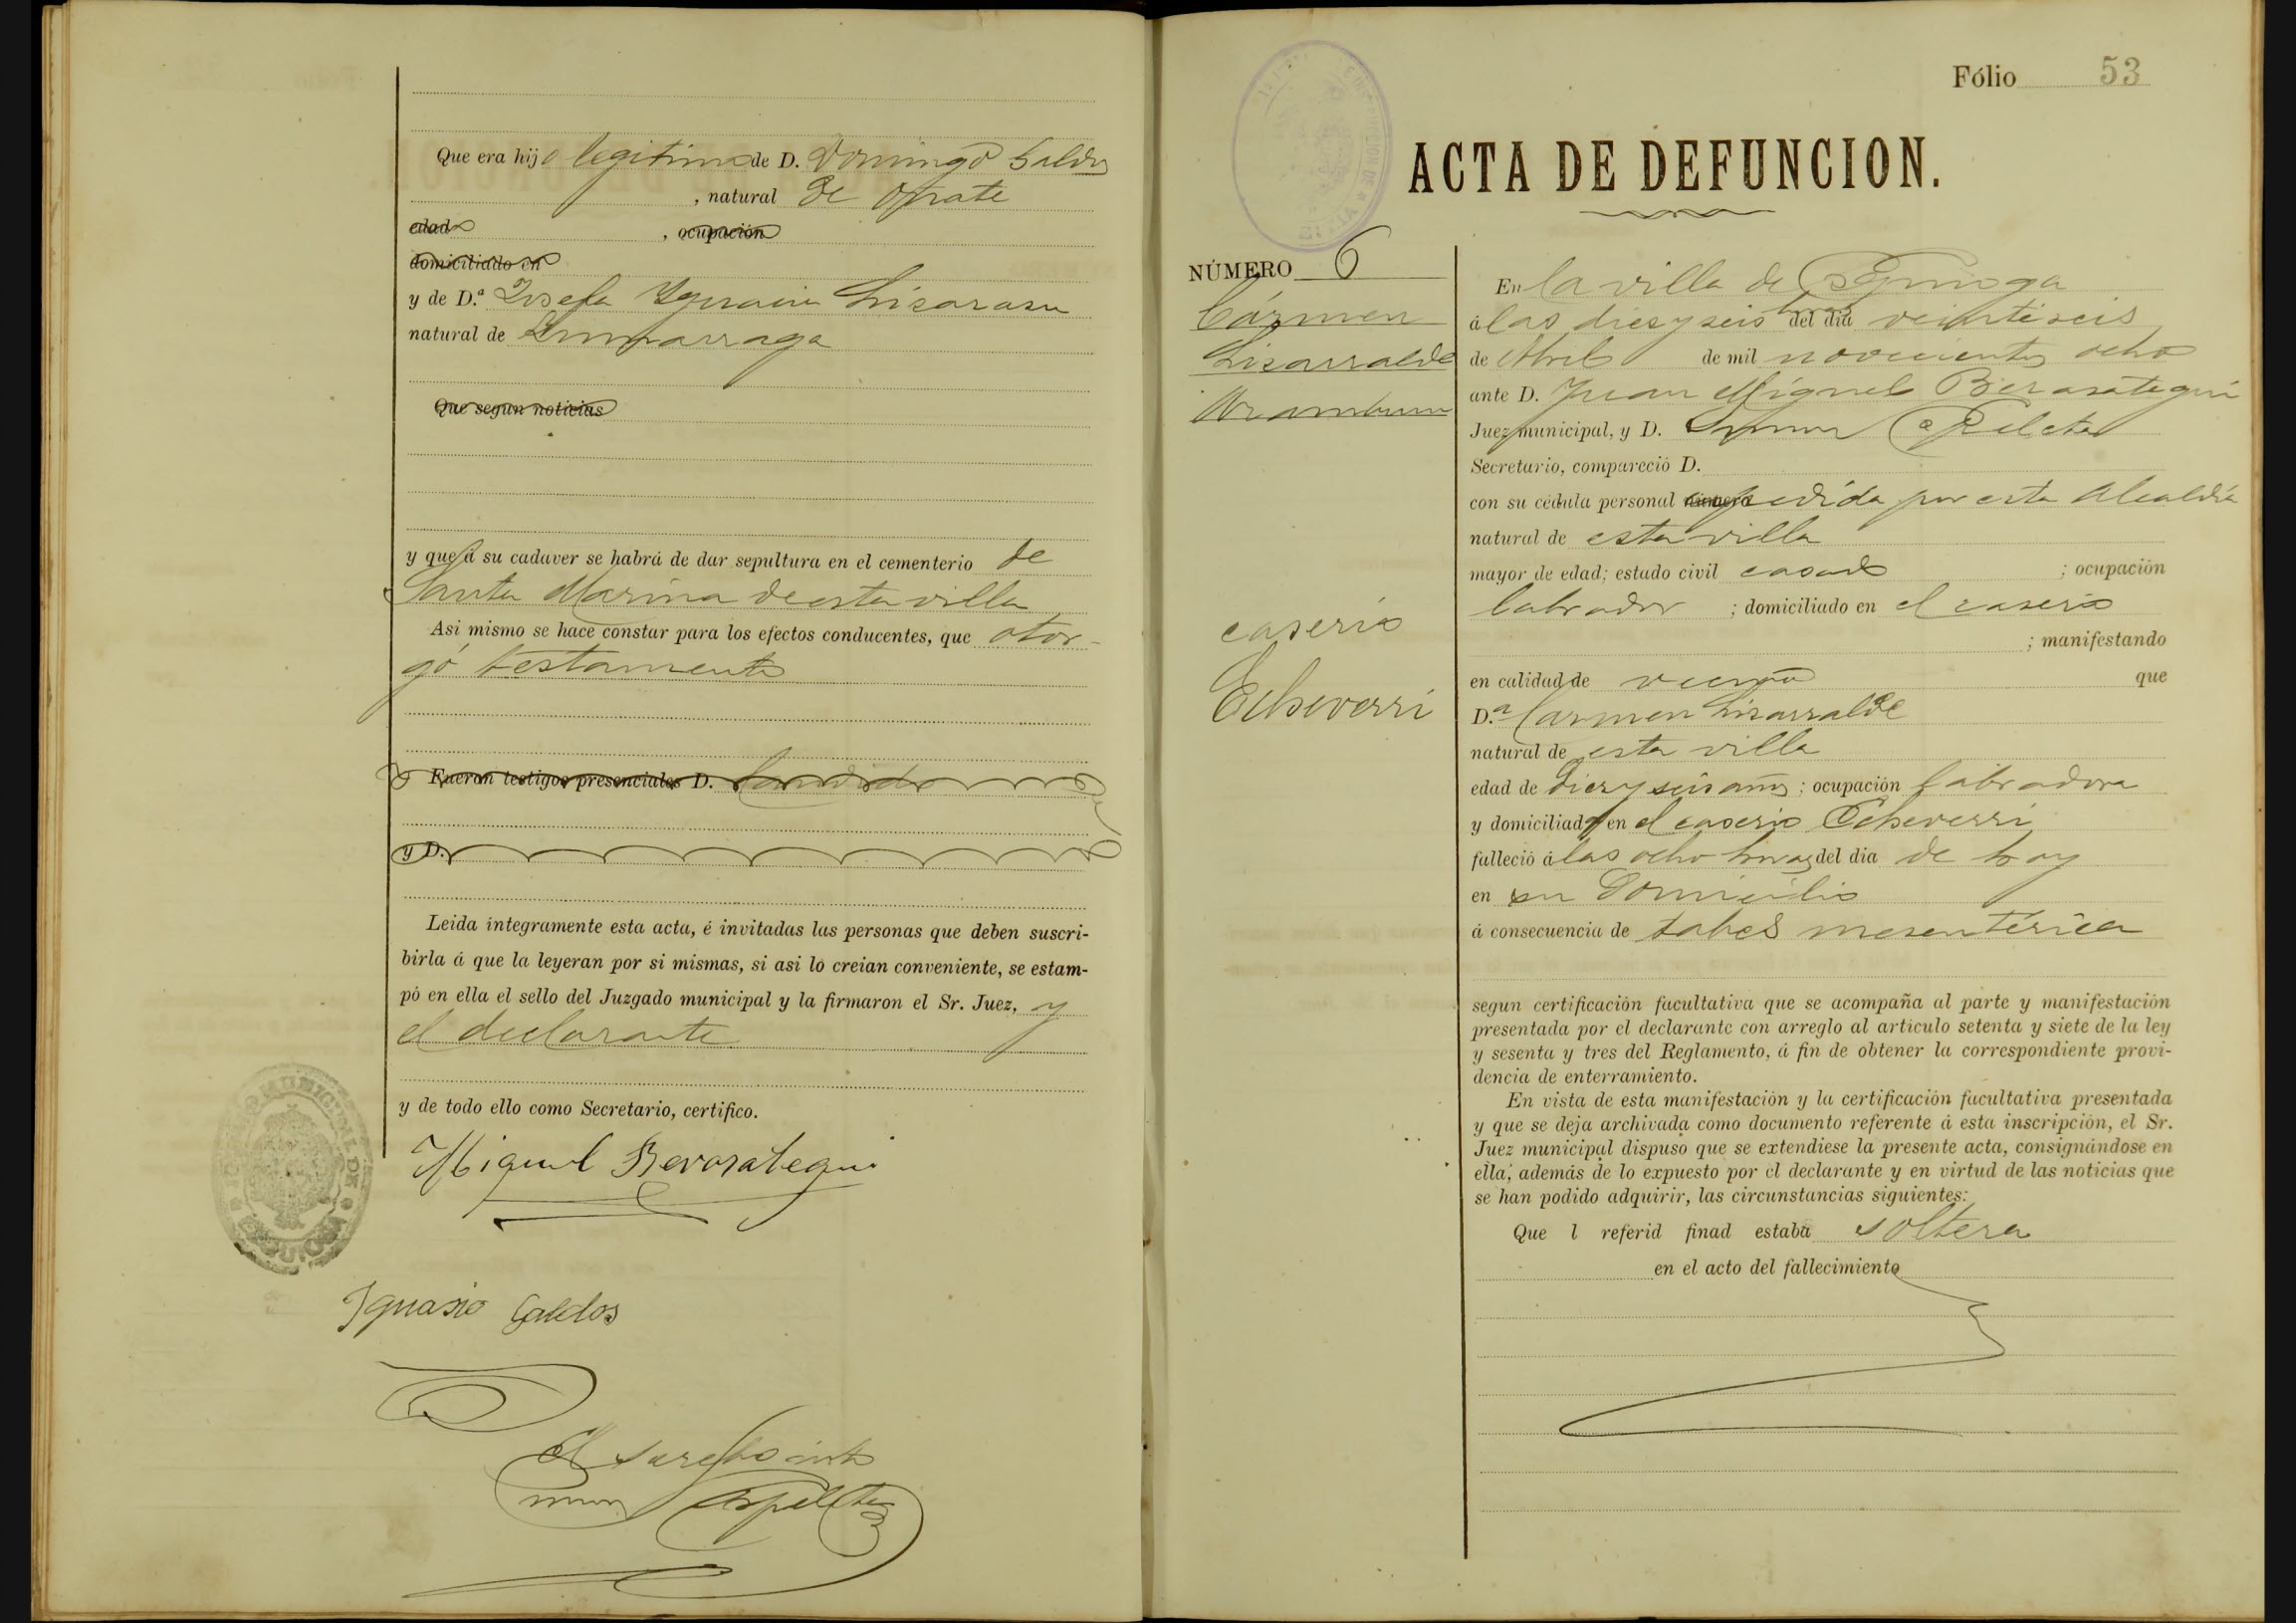 Que era hijo legitimo de D. Domingo Galdos
, natural de Oñate
edad , ocupación
domiciliado en
y de D.ª Josefa Ygnacia Lizarazu
natural de Zumarraga
Que segun noticias
y que á su cadaver se habrá de dar sepultura en el cementerio de
Santa Marina de esta villa
Asi mismo se hace constar para los efectos conducentes, que otor-
gó testamento
Fueron testigos presenciales D. Candido
y D.
Leida íntegramente esta acta, é invitadas las personas que deben suscri-
birla á que la leyeran por si mismas, si asi lo creian conveniente, se estam-
pó en ella el sello del Juzgado municipal y la firmaron el Sr. Juez, y
el declarante
y de todo ello como Secretario, certifico.
Miguel Berasategui
JUZGADO MUNICIPAL DE
Ignasio Galdos
Fólio 53
ACTA DE DEFUNCION.
NÚMERO 6
Cármen
Lizarralde
Aramburu
caserio
Echeverri
En la villa de
á las diez y seis horas del dia veintiseis
de Abril de mil novecientos ocho
ante D. Juan Miguel Berasategui
Juez municipal, y D.
Secretario, compareció D.
con su cédula personal número expedida por esta Alcaldia
natural de esta villa
mayor de edad; estado civil casado ; ocupación
labrador ; domiciliado en el caserio
; manifestando
en calidad de vecino que
D.ª Carmen Lizarralde
natural de esta villa
edad de diez y seis años ; ocupación labradora
y domiciliada en el caserio Echeverri
falleció á las ocho horas del dia de hoy
en su domicilio
á consecuencia de tabes mesentérica
segun certificación facultativa que se acompaña al parte y manifestación
presentada por el declarante con arreglo al artículo setenta y siete de la ley
y sesenta y tres del Reglamento, á fin de obtener la correspondiente provi-
dencia de enterramiento.
En vista de esta manifestación y la certificación facultativa presentada
y que se deja archivada como documento referente á esta inscripción, el Sr.
Juez municipal dispuso que se extendiese la presente acta, consignándose en
ella, además de lo expuesto por el declarante y en virtud de las noticias que
se han podido adquirir, las circunstancias siguientes:
Que l referid finad estaba soltera
en el acto del fallecimiento